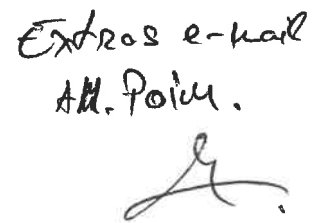 Extras e-mail
AM. POIM.